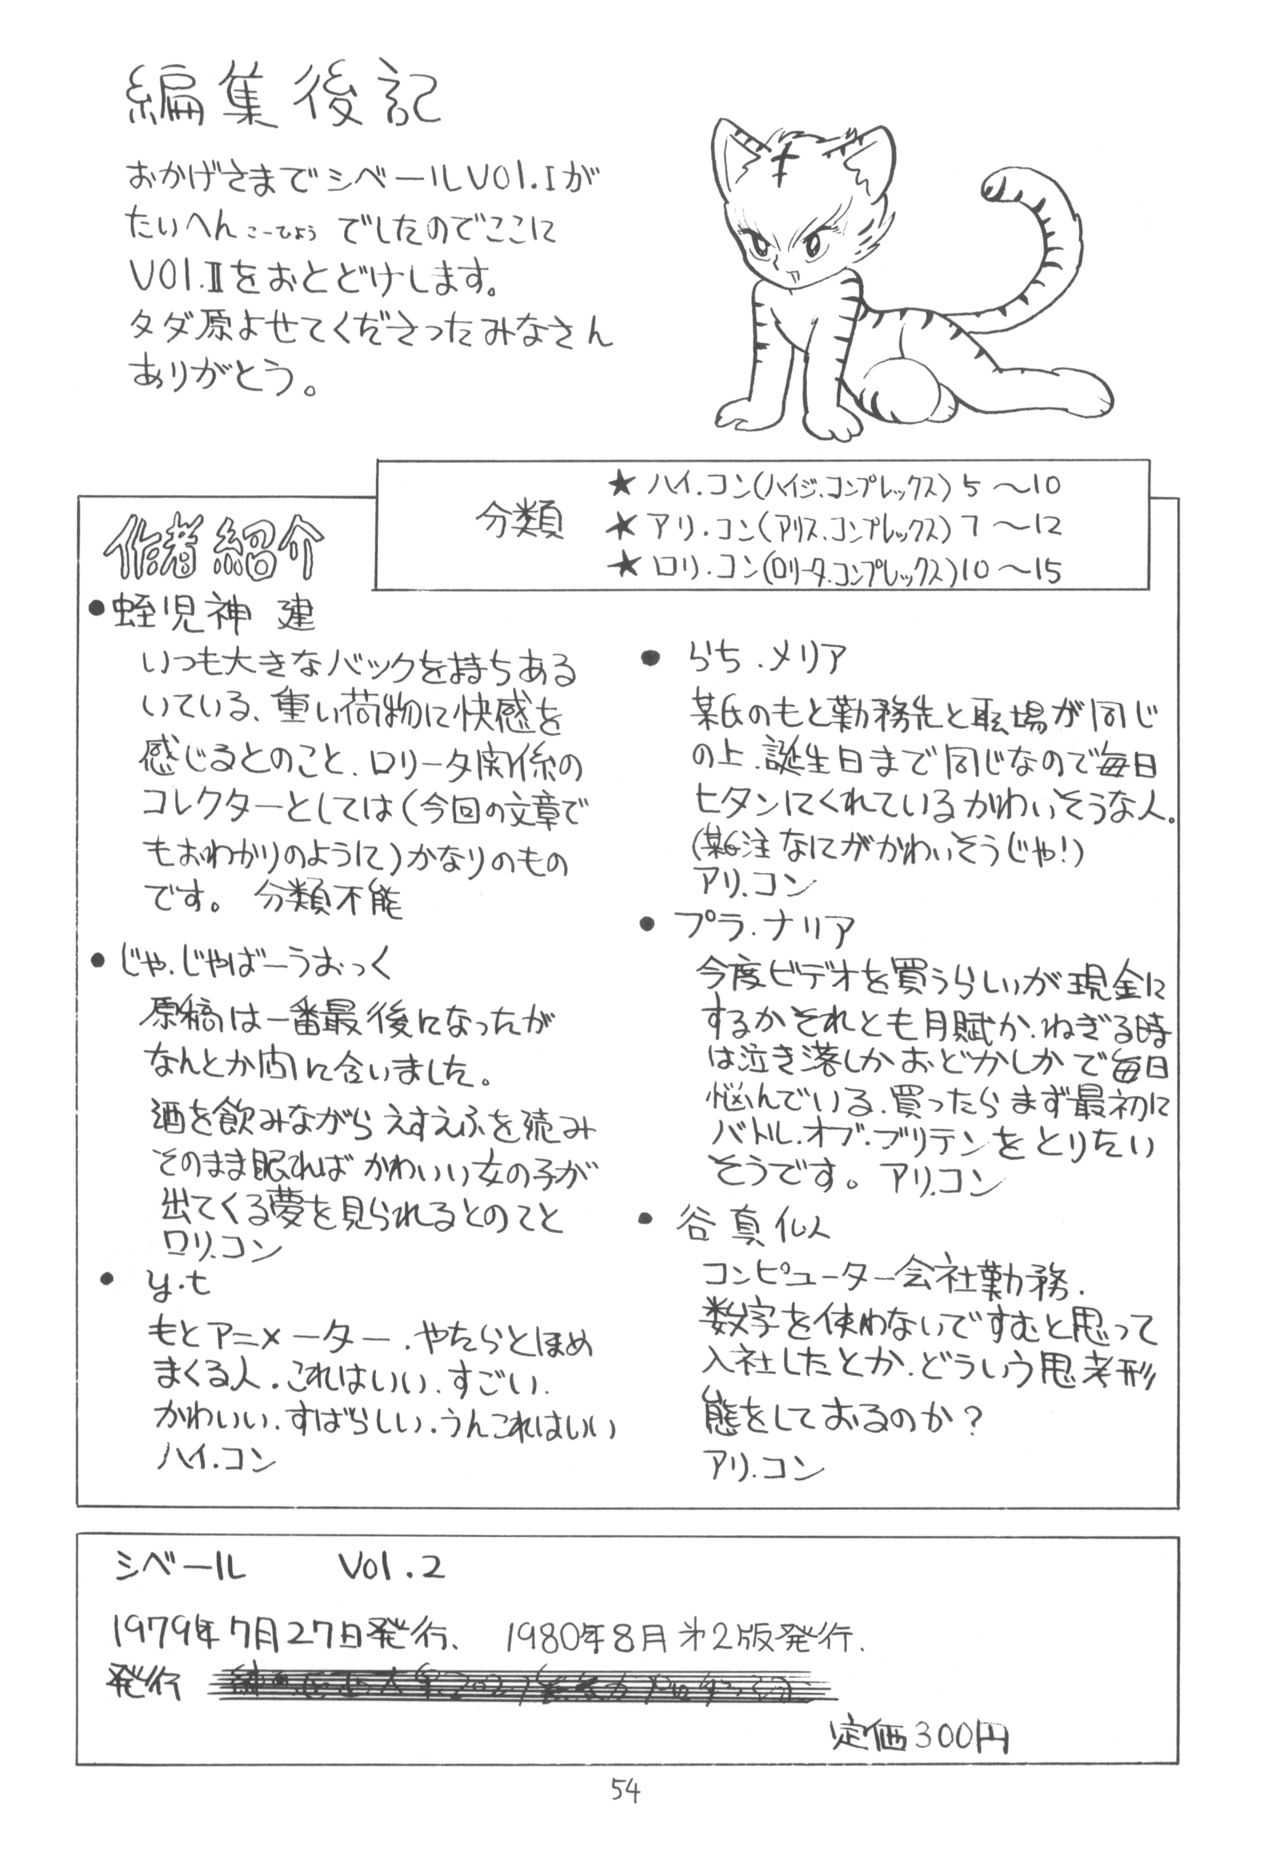 編集後記
おかげさまでシベールVOl.Iが
たいへん こーひょう でしたのでここに
VOl.IIをおとどけします。
タダ原よせてくださったみなさん
ありがとう。
分類
★ハイ.コン(ハイジ.コンプレックス) 5 〜10
★アリ.コン(アリス.コンプレックス) 7 〜12
★ロリ.コン(ロリータ.コンプレックス)10 〜15
作者紹介
●蛭児神 建
いつも大きなバックを持ちある
いている、重い荷物に快感を
感じるとのこと、ロリータ関係の
コレクターとしては(今回の文章で
もおわかりのように)かなりのもの
です。 分類不能
●じゃ.じゃばーうおっく
原稿は一番最後になったが
なんとか間に合いました。
酒を飲みながらえすえふを読み
そのまま眠れば かわいい女の子が
出てくる夢を見られるとのこと
ロリ.コン
● y.t
もとアニメーター.やたらとほめ
まくる人.これはいい.すごい.
かわいい.すばらしい.うんこれはいい
ハイ.コン
● らち.メリア
某氏のもと勤務先と職場が同じ
の上.誕生日まで同じなので毎日
ヒタンにくれているかわいそうな人。
(某氏注 なにがかわいそうじゃ!)
アリ.コン
● プラ.ナリア
今度ビデオを買うらしいが現金に
するかそれとも月賦か.ねぎる時
は泣き落しかおどかしかで毎日
悩んでいる.買ったらまず最初に
バトル.オブ.ブリテンをとりたい
そうです。 アリ.コン
● 谷 真仏人
コンピューター会社勤務.
数字を使わないですむと思って
入社したとか.どういう思考形
態をしておるのか?
アリ.コン
シベール Vol.2
1979年7月27日発行、 1980年8月 才2版発行.
発行
定価300円
54